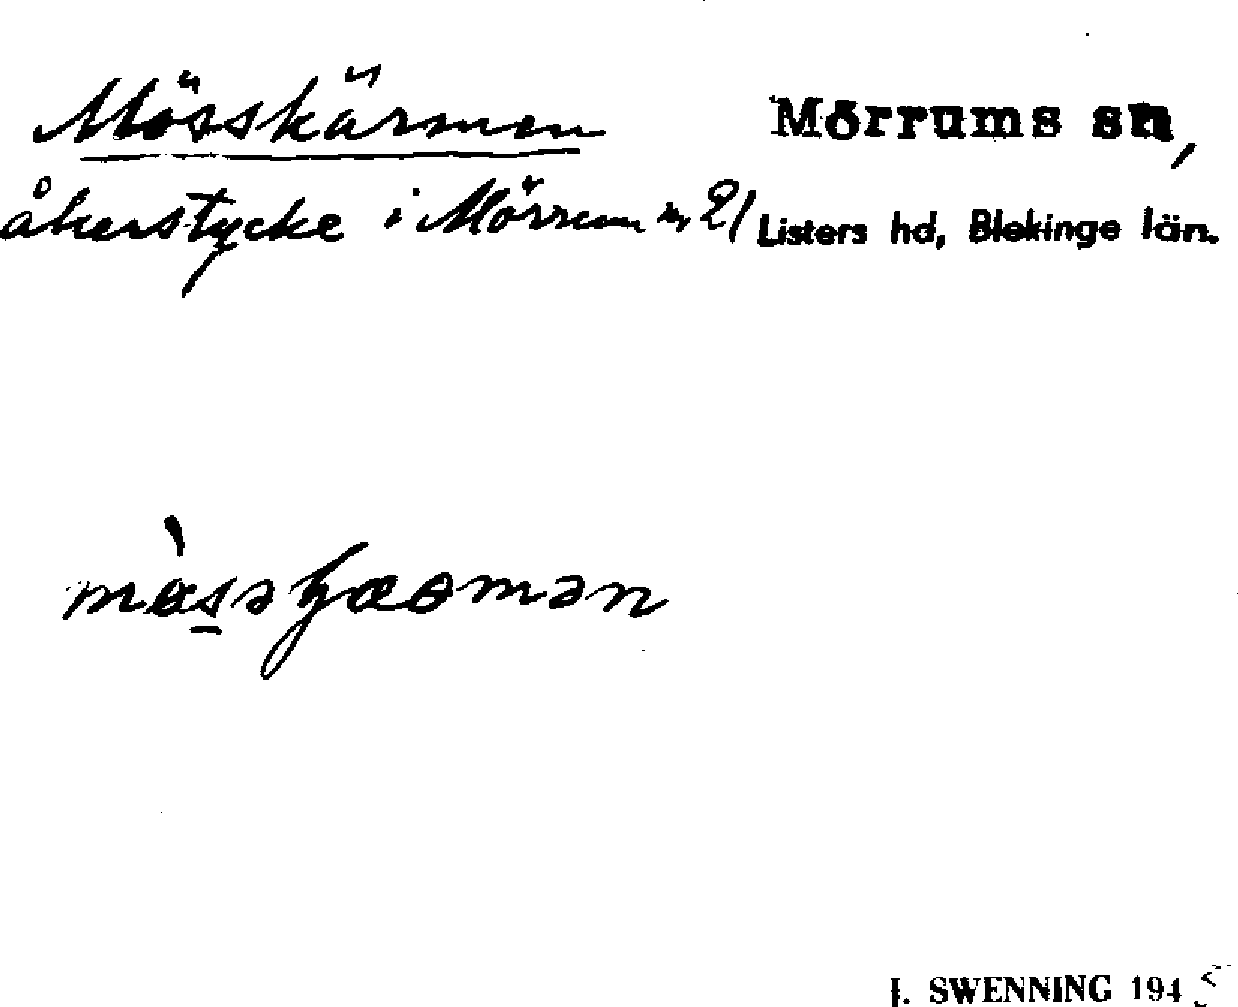 Mösskärmen
Mörrums sn,
åkerstycke i Mörrum nr 21
Listers hd, Blekinge län.
J. SWENNING 1945